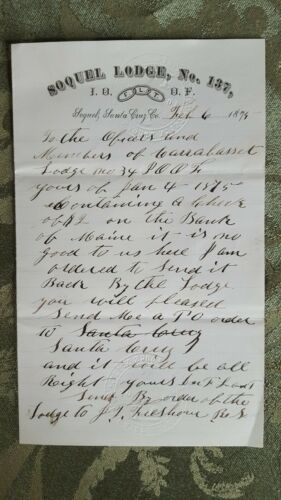 SOQUEL LODGE, No. 137,
I. O. O. F.
F L & T
Soquel, Santa Cruz Co. Feb 6 1875
To the Oficers and
Members of Carrabasset
Lodge no 34 I O O F
yours of Jan 4 1875
Containing a Check
of $2 on the Bank
of Maine it is no
good to us here I am
ordered to Send it
Back By the Lodge
you will pleased
Send Me a P O order
to Santa Cruz
Santa Cruz
and it will be all
Right yours In F L and T
Send By order of the
Lodge to J. T.